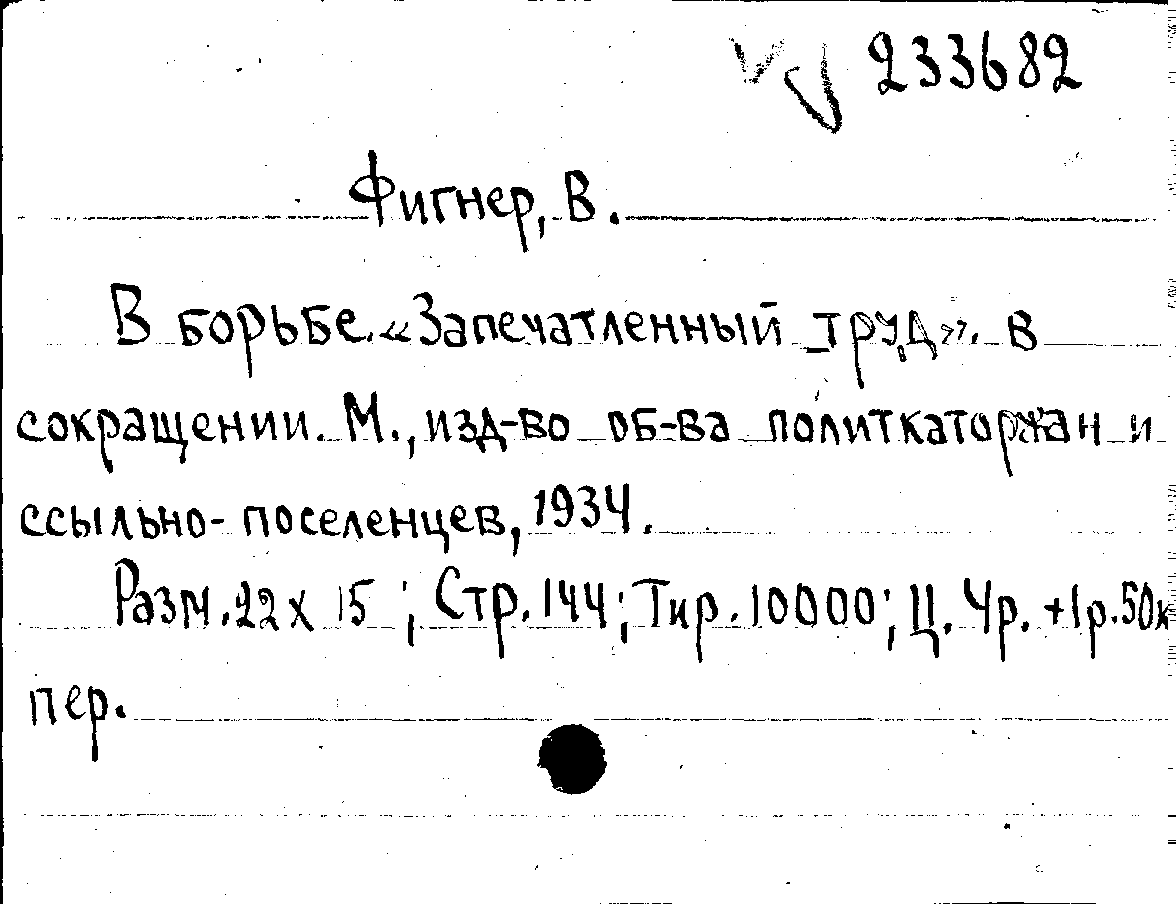 233682
Фигнер, В.
В борьбе. «Запечатленный труд». в
сокращении. М., изд-во об-ва политкаторжан и
ссыльно-поселенцев, 1934.
Разм. 22х15; Стр. 144; Тир. 10000; Ц. 4р. +1р. 50к
пер.